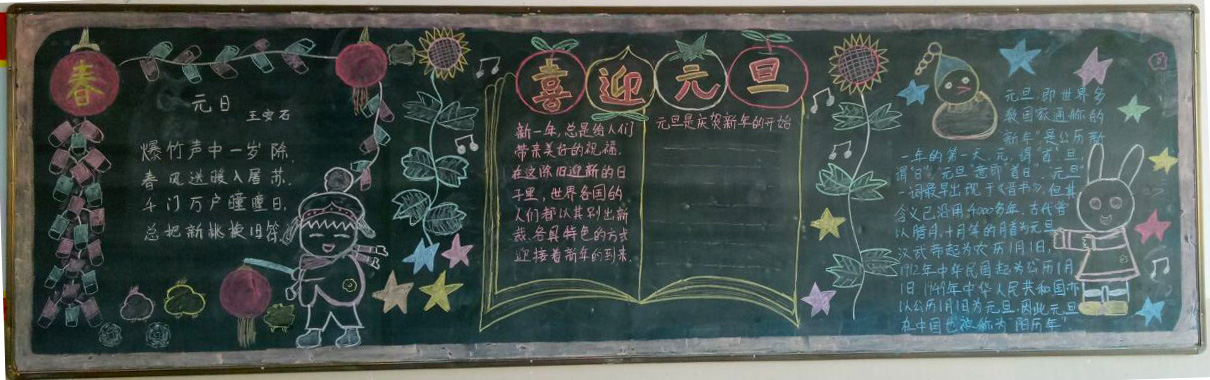 春
元日
王安石
爆竹声中一岁除,
春风送暖入屠苏.
千门万户曈曈日,
总把新桃换旧符.
喜迎元旦
新一年,总是给人们
带来美好的祝福.
在这除旧迎新的日
子里,世界各国的
人们都以其别出新
裁,各具特色的方式
迎接着新年的到来.
元旦是庆贺新年的开始
元旦,即世界多
数国家通称的
"新年"是公历新
一年的第一天.元,谓"首",旦,
谓"日",元旦意即"首日".元旦"
一词最早出现于《晋书》,但其
含义已沿用4000多年.古代曾
以腊月、十月等的月首为元旦
汉武帝起为农历1月1日,
1912年中华民国起为公历1月
1日,1949年中华人民共和国亦
以公历1月1日为元旦.因此元旦
在中国也被称为"阳历年"